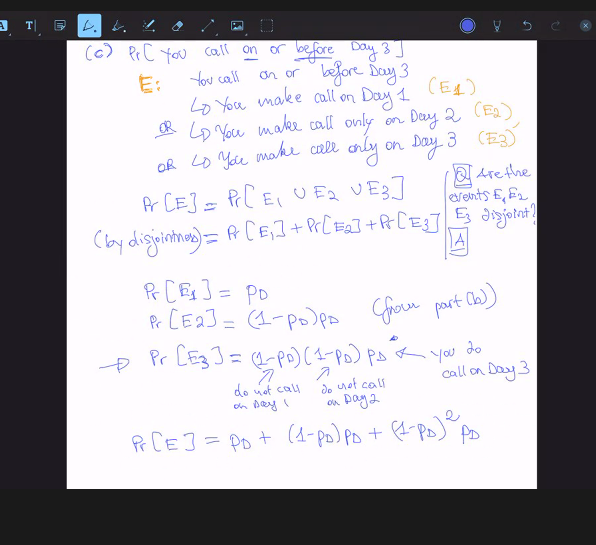 (c) Pr[ You call on or before Day 3]
E: You call on or before Day 3
↳ You make call on Day 1 (E1)
OR ↳ You make call only on Day 2 (E2)
OR ↳ You make call only on Day 3 (E3)
Pr[E] = Pr[ E1 ∪ E2 ∪ E3]
(by disjointness) = Pr[E1] + Pr[E2] + Pr[E3]
Q Are the
events E1, E2
E3 disjoint?
A
Pr[E1] = pD
Pr[E2] = (1-pD)pD (from part (b))
→ Pr[E3] = (1-pD)(1-pD) pD ← You do
call on Day 3
do not call
on Day 1
do not call
on Day 2
Pr[E] = pD + (1-pD)pD + (1-pD)² pD